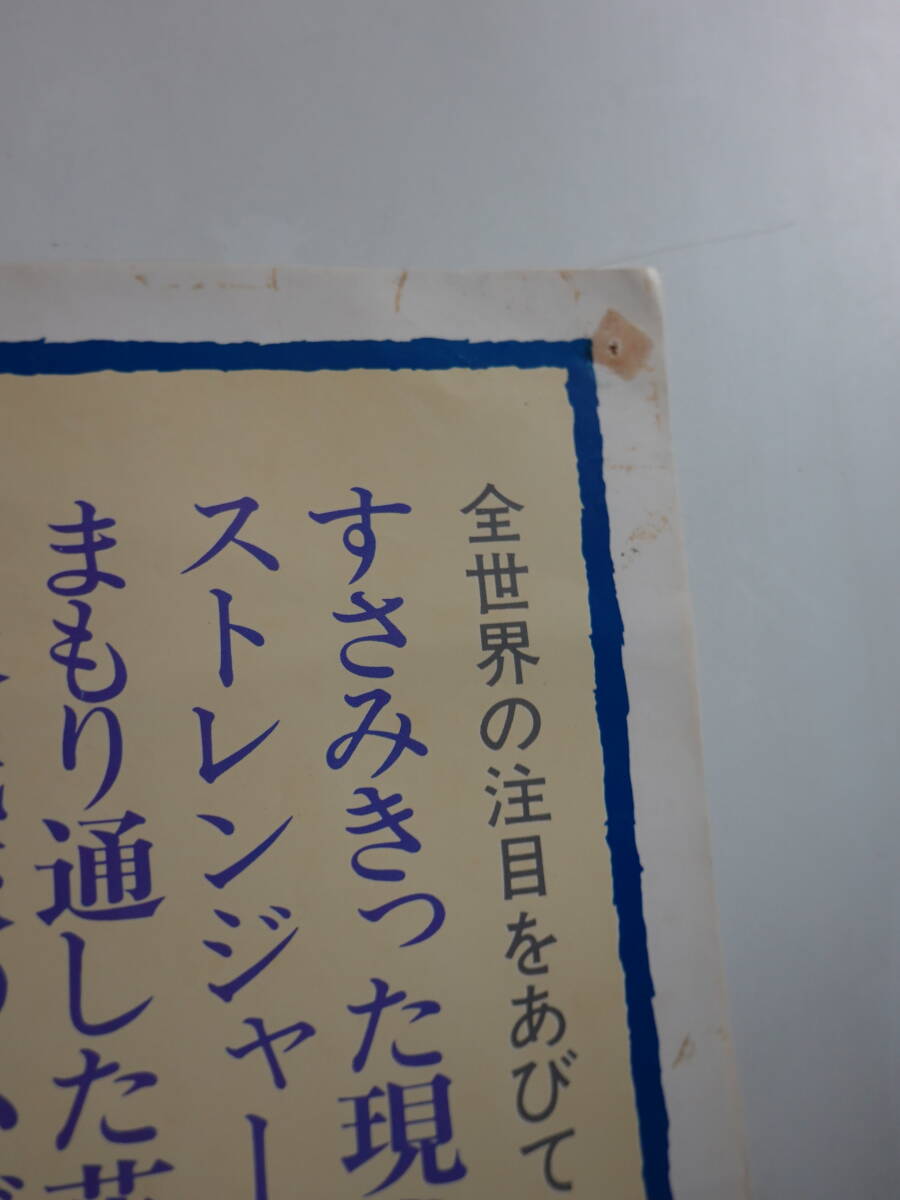 全世界の注目をあびて
すさみきった現
ストレンジャー
まもり通した